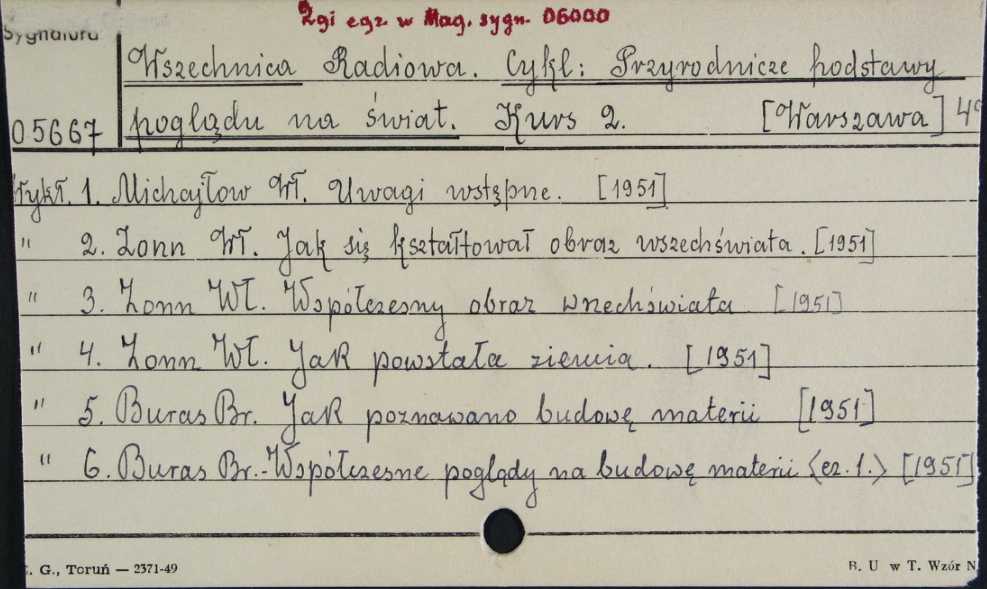 2gi egz w Mag. sygn. 06000
Sygnatura
Wszechnica Radiowa. Cykl: Przyrodnicze podstawy
05667 poglądu na świat. Kurs 2. [Warszawa] 4°
Wykł. 1. Michajłow Wł. Uwagi wstępne. [1951]
" 2. Zonn Wł. Jak się kształtował obraz wszechświata. [1951]
" 3. Zonn Wł. Współczesny obraz wszechświata [1951]
" 4. Zonn Wł. Jak powstała ziemia. [1951]
" 5. Buras Br. Jak poznawano budowę materii [1951]
" 6. Buras Br.-Współczesne poglądy na budowę materii <cz. 1.> [1951]
. G., Toruń — 2371-49
B. U w T. Wzór N